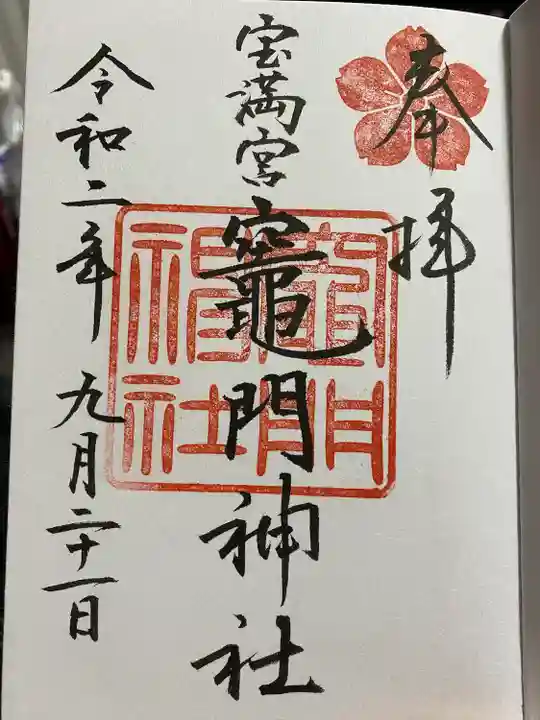 奉拝
宝満宮
竈門神社
令和二年九月二十一日